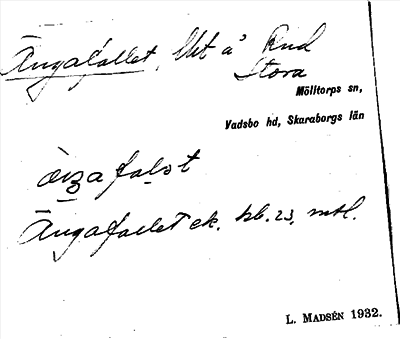 Ängafallet, Utt å Rud
Stora
Mölltorps sn,
Vadsbo hd, Skaraborgs län
Ängafallet ek. kb. 23, mtl.
L. MADSÉN 1932.